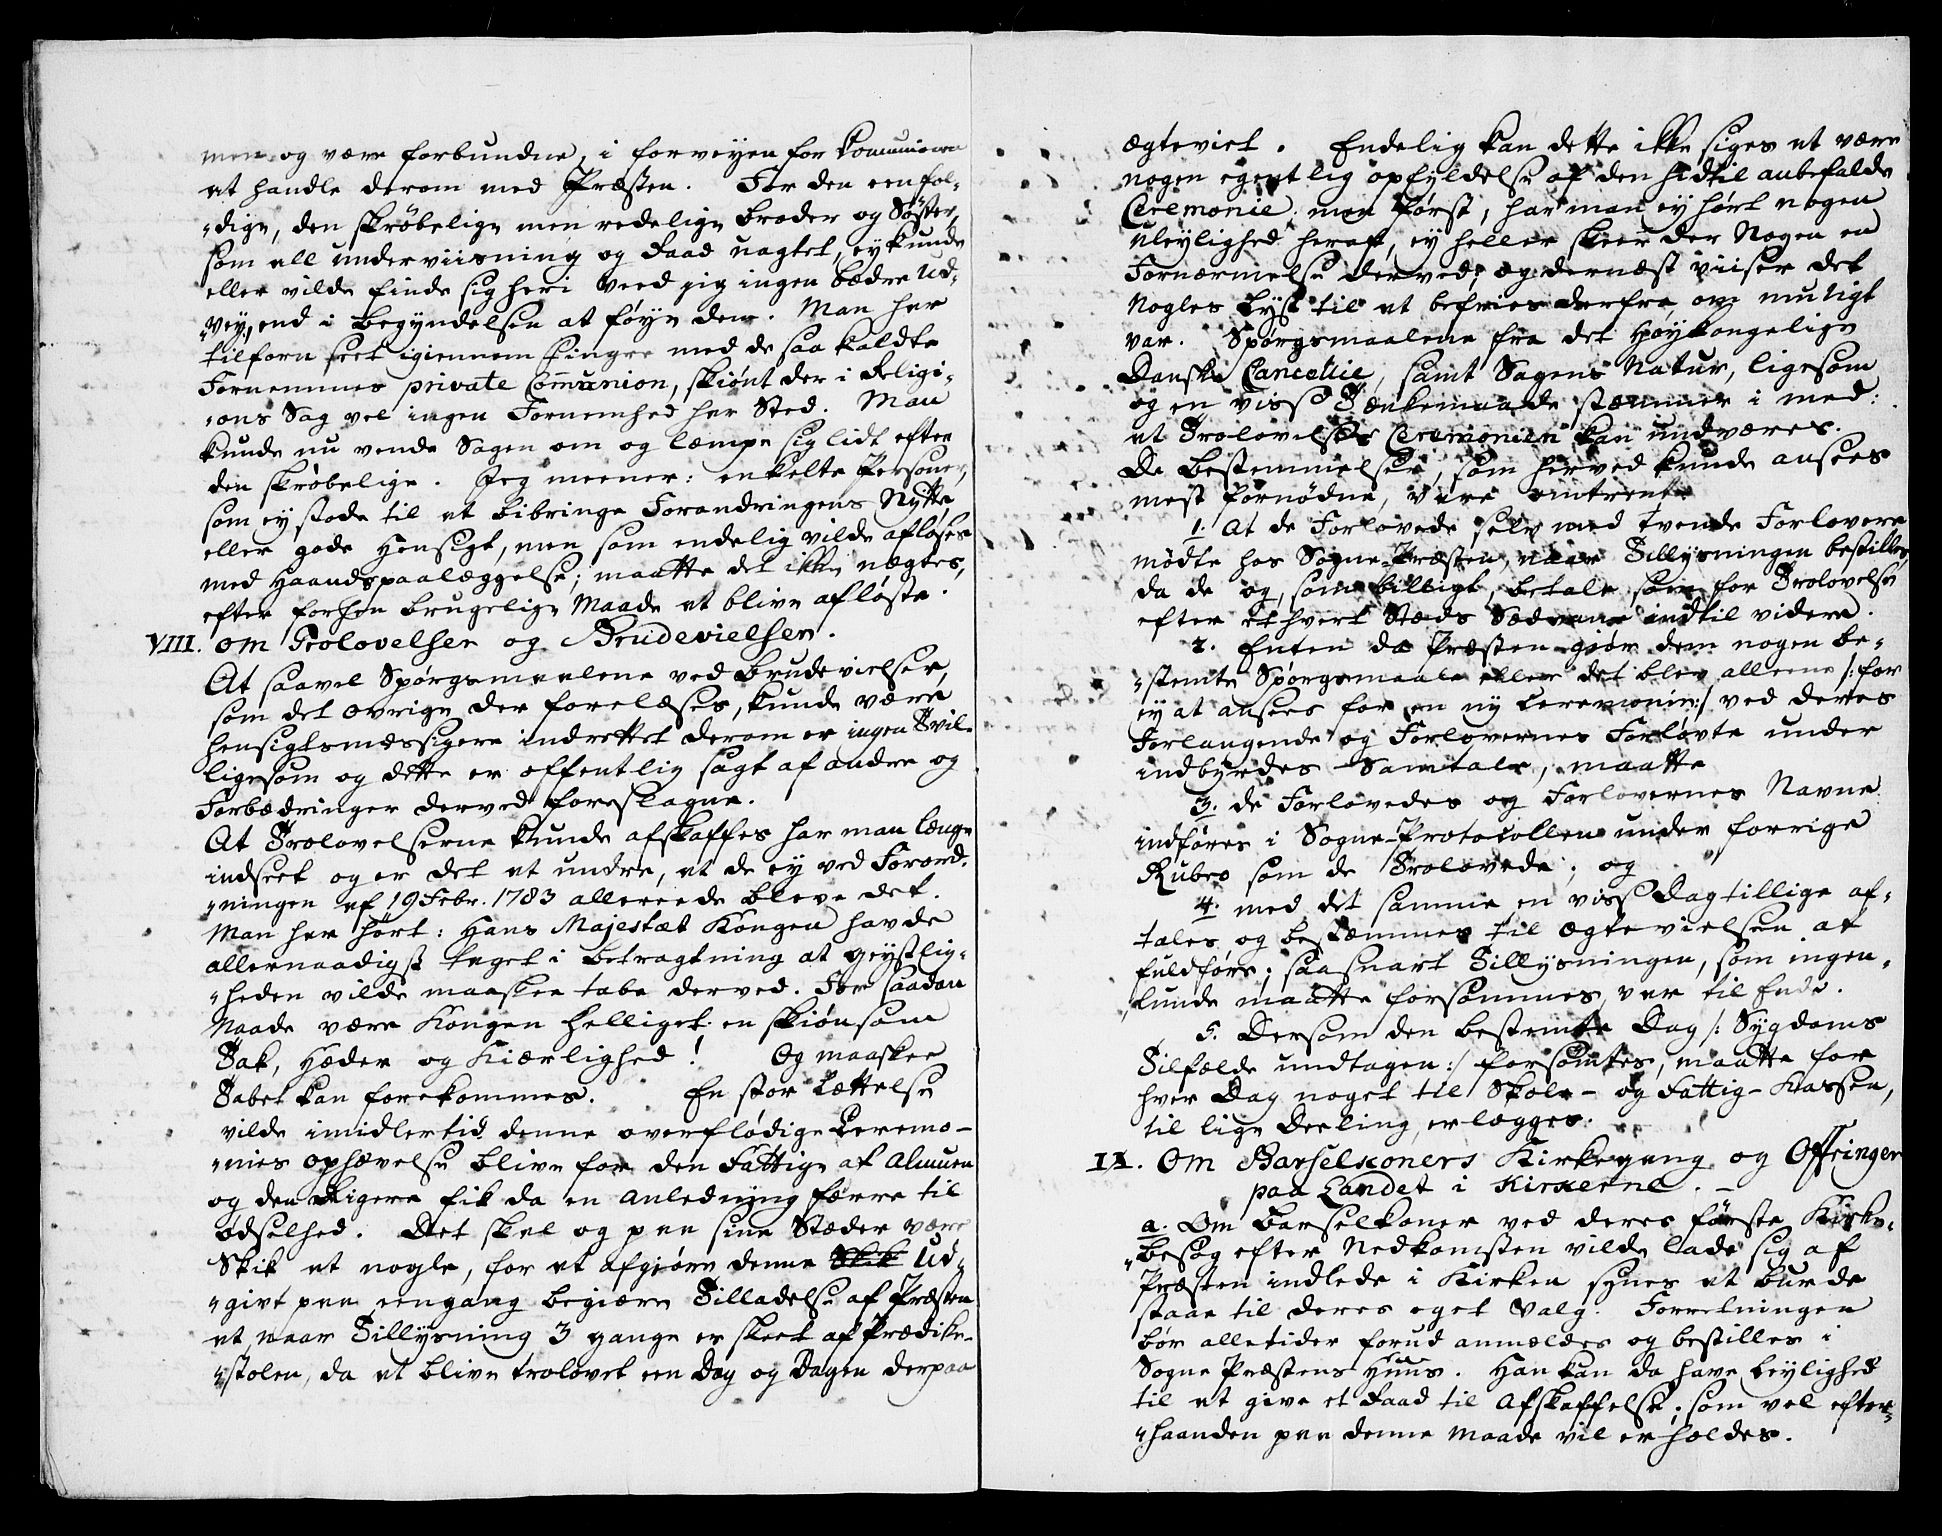 men og være forbundne, i forveyen for Communionen
at handle derom med Præsten. For den eenfol-
dige, den skrøbelige men redelige Broder og Søster,
som all underviisning og Raad uagtet, ey kunde
eller vilde finde sig heri veed jeg ingen bedre Ud-
vey, end i Begyndelsen at føye dem. Man har
tilforn seet igiennem Fingre med de saa kaldte
Fornemmes private Communion, skiønt der i Religi-
ons Sag vel ingen Fornemhed har Sted. Man
kunde nu vende Sagen om og læmpe sig lidt efter
den skrøbelige. Jeg meener: enkelte Personer,
som ey stode til at bibringe Forandringens Nytte
eller gode Hensigt, men som endelig vilde afløses
med Haandspaalæggelse; maatte det ikke nægtes,
efter forhen brugelige Maade at blive afløste.
VIII. om Trolovelser og Brudevielser.
At saavel Spørgsmaalene ved Brudevielser,
som det øvrige der forelæses, kunde være
hensigtsmæssigere indrettet derom er ingen Tvil
ligesom og dette er offentlig sagt af andre og
Forbedringer derved foreslagne.
At Trolovelserne kunde afskaffes har man længe
indseet og er det at undre, at de ey ved Forord-
ningen af 19 Febr. 1783 allereede bleve det.
Man har hørt: Hans Majestæt Kongen havde
allernaadigst taget i betragtning at geystlig-
heden vilde maaskee tabe derved. For saadan
Naade være Kongen helliget en skiønsom
Tak, Hæder og Kiærlighed! Og maaskee
Tabet kan forekommes. En stor Lettelse
vilde imidlertid denne overflødige Ceremo-
nies Ophævelse blive for den Fattige af Almuen
og den Rigere fik da en Anledning færre til
ødselhed. Det skal og paa sine Stæder være
Skik at nogle, for at afgiøre denne Skik Ud-
givt paa eengang begiære Tilladelse af Præsten
at, naar Tillysning 3 gange er skeet af Prædike-
stolen, da at blive trolovet een Dag og Dagen derpaa
ægteviet. Endelig kan dette ikke siges at være
nogen egentlig opfyldelse af den hidtil anbefalde
Ceremonie: men først, har man ey hørt nogen
Uleylighed heraf, ey heller skeer der Nogen en
Fornærmelse derved; og dernæst viiser det
Nogles Lyst til at befries derfra, om muligt
var. Spørgsmaalene fra det Høykongelige
Danske Cancellie, samt Sagens Natur, ligesom
og en viss Tænkemaade stemmer i med:
at Trolovelses Ceremonien kan undværes.
De Bestemmelser, som herved kunde ansees
mest fornødne, vare omtrent
1. At de Forlovede selv med tvende Forlovere
mødte hos Sogne-Præsten, naar Tillysningen bestilles,
da de og, som billigt, betale som for Trolovelse
efter ethvert Steds Sædvane indtil videre.
2. Enten da Præsten giør dem nogen be-
stemte Spørgsmaale eller det blev alleene /: for
ey at ansees for en ny Ceremonie :/ ved deres
Forlangende og Forlovernes Forløvte under
indbyrdes Samtale, maatte
3. de Forlovedes og Forlovernes Navne
indføres i Sogne-Protocollen under forrige
Rubro som de Trolovede; og
4. med det samme en viss Dag tillige af-
tales og bestemmes til Ægtevielsen at
fuldføre; saasnart Tillysningen, som ingen-
lunde maatte forsømmes, var til Ende.
5. Dersom den bestemte Dag /: Sygdoms
Tilfælde undtagen :/ forsømtes, maatte for
hver Dag noget til Skole- og Fattig-Kassen,
til lige Deeling, erlægges.
IX. Om Barselkoners Kirkegang og Offringer
paa Landet i Kirkerne. -
a. Om Barselkoner ved deres første Kirke-
Besøg efter Nedkomsten vilde lade sig af
Præsten indlede i Kirken synes at burde
staae til deres eget Valg. Forretningen
bør alletider forud anmældes og bestilles i
Sogne Præstens Huus. Han kan da have Leylighed
til at give et Raad til Afskaffelse, som vel efter-
haanden paa denne Maade vil erholdes.